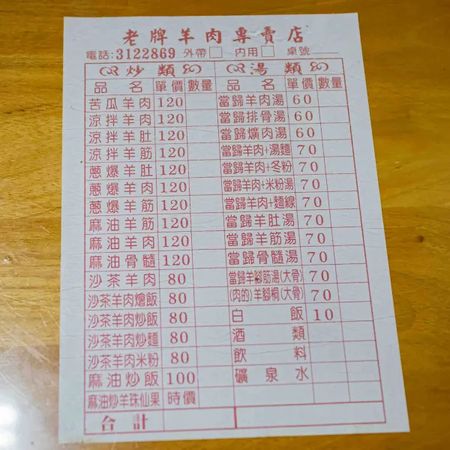 老牌羊肉專賣店
電話:3122869 外帶 内用 桌號
炒類
品名 單價 數量
苦瓜羊肉 120
涼拌羊肉 120
涼拌羊肚 120
涼拌羊筋 120
蔥爆羊肚 120
蔥爆羊肉 120
蔥爆羊筋 120
麻油羊筋 120
麻油羊肉 120
麻油骨髓 120
沙茶羊肉 80
沙茶羊肉燴飯 80
沙茶羊肉炒飯 80
沙茶羊肉炒麵 80
沙茶羊肉米粉 80
麻油炒飯 100
麻油炒羊珠仙果 時價
合計
湯類
品名 單價 數量
當歸羊肉湯 60
當歸排骨湯 60
當歸爌肉湯 60
當歸羊肉+湯麵 70
當歸羊肉+冬粉 70
當歸羊肉+米粉湯 70
當歸羊肉+麵線 70
當歸羊肚湯 70
當歸羊筋湯 70
當歸骨髓湯 70
當歸羊腳筋湯(大骨) 70
(肉的)羊腳桐(大骨) 70
白飯 10
酒類
飲料
礦泉水